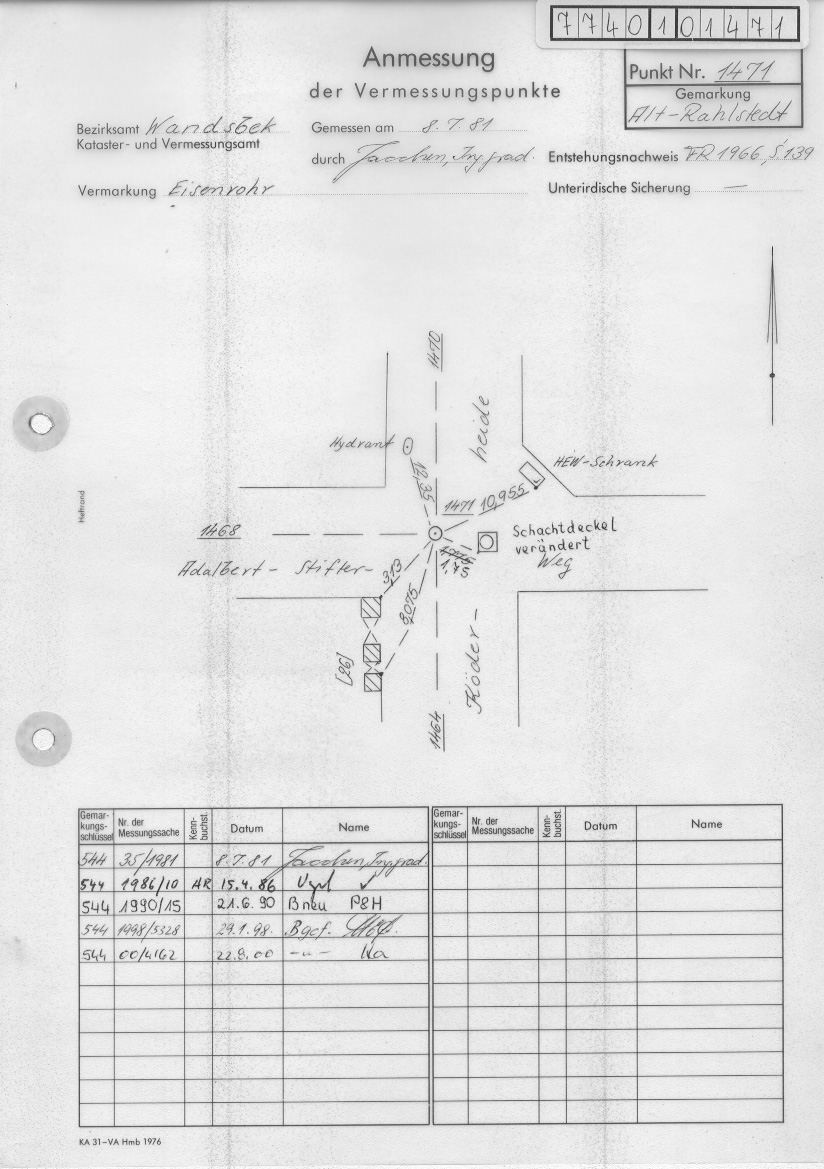 7740101471
Anmessung
der Vermessungspunkte
Punkt Nr. 1471
Gemarkung
Alt-Rahlstedt
Bezirksamt Wandsbek
Kataster- und Vermessungsamt
Gemessen am 8.7.81
durch Ing. grad.
Entstehungsnachweis FR 1966, S.139
Vermarkung Eisenrohr
Unterirdische Sicherung —
1470
heide
Hydrant
12,35
HEW-Schrank
1471 10,955
1468
Schachtdeckel
verändert
Weg
1,75
Adalbert - Stifter-
3,13
8,075
[26]
Röder-
1464
Heftrand
Gemar-kungs-schlüssel Nr. der Messungssache Kenn-buchst. Datum Name Gemar-kungs-schlüssel Nr. der Messungssache Kenn-buchst. Datum Name
544 35/1981 8.7.81 Ing. grad.
544 1986/10 AR 15.4.86 ✓
544 1990/15 21.6.90 B neu P8H
544 1998/5328 29.1.98. Bgef.
544 00/4162 22.8.00 -"- Na
KA 31–VA Hmb 1976